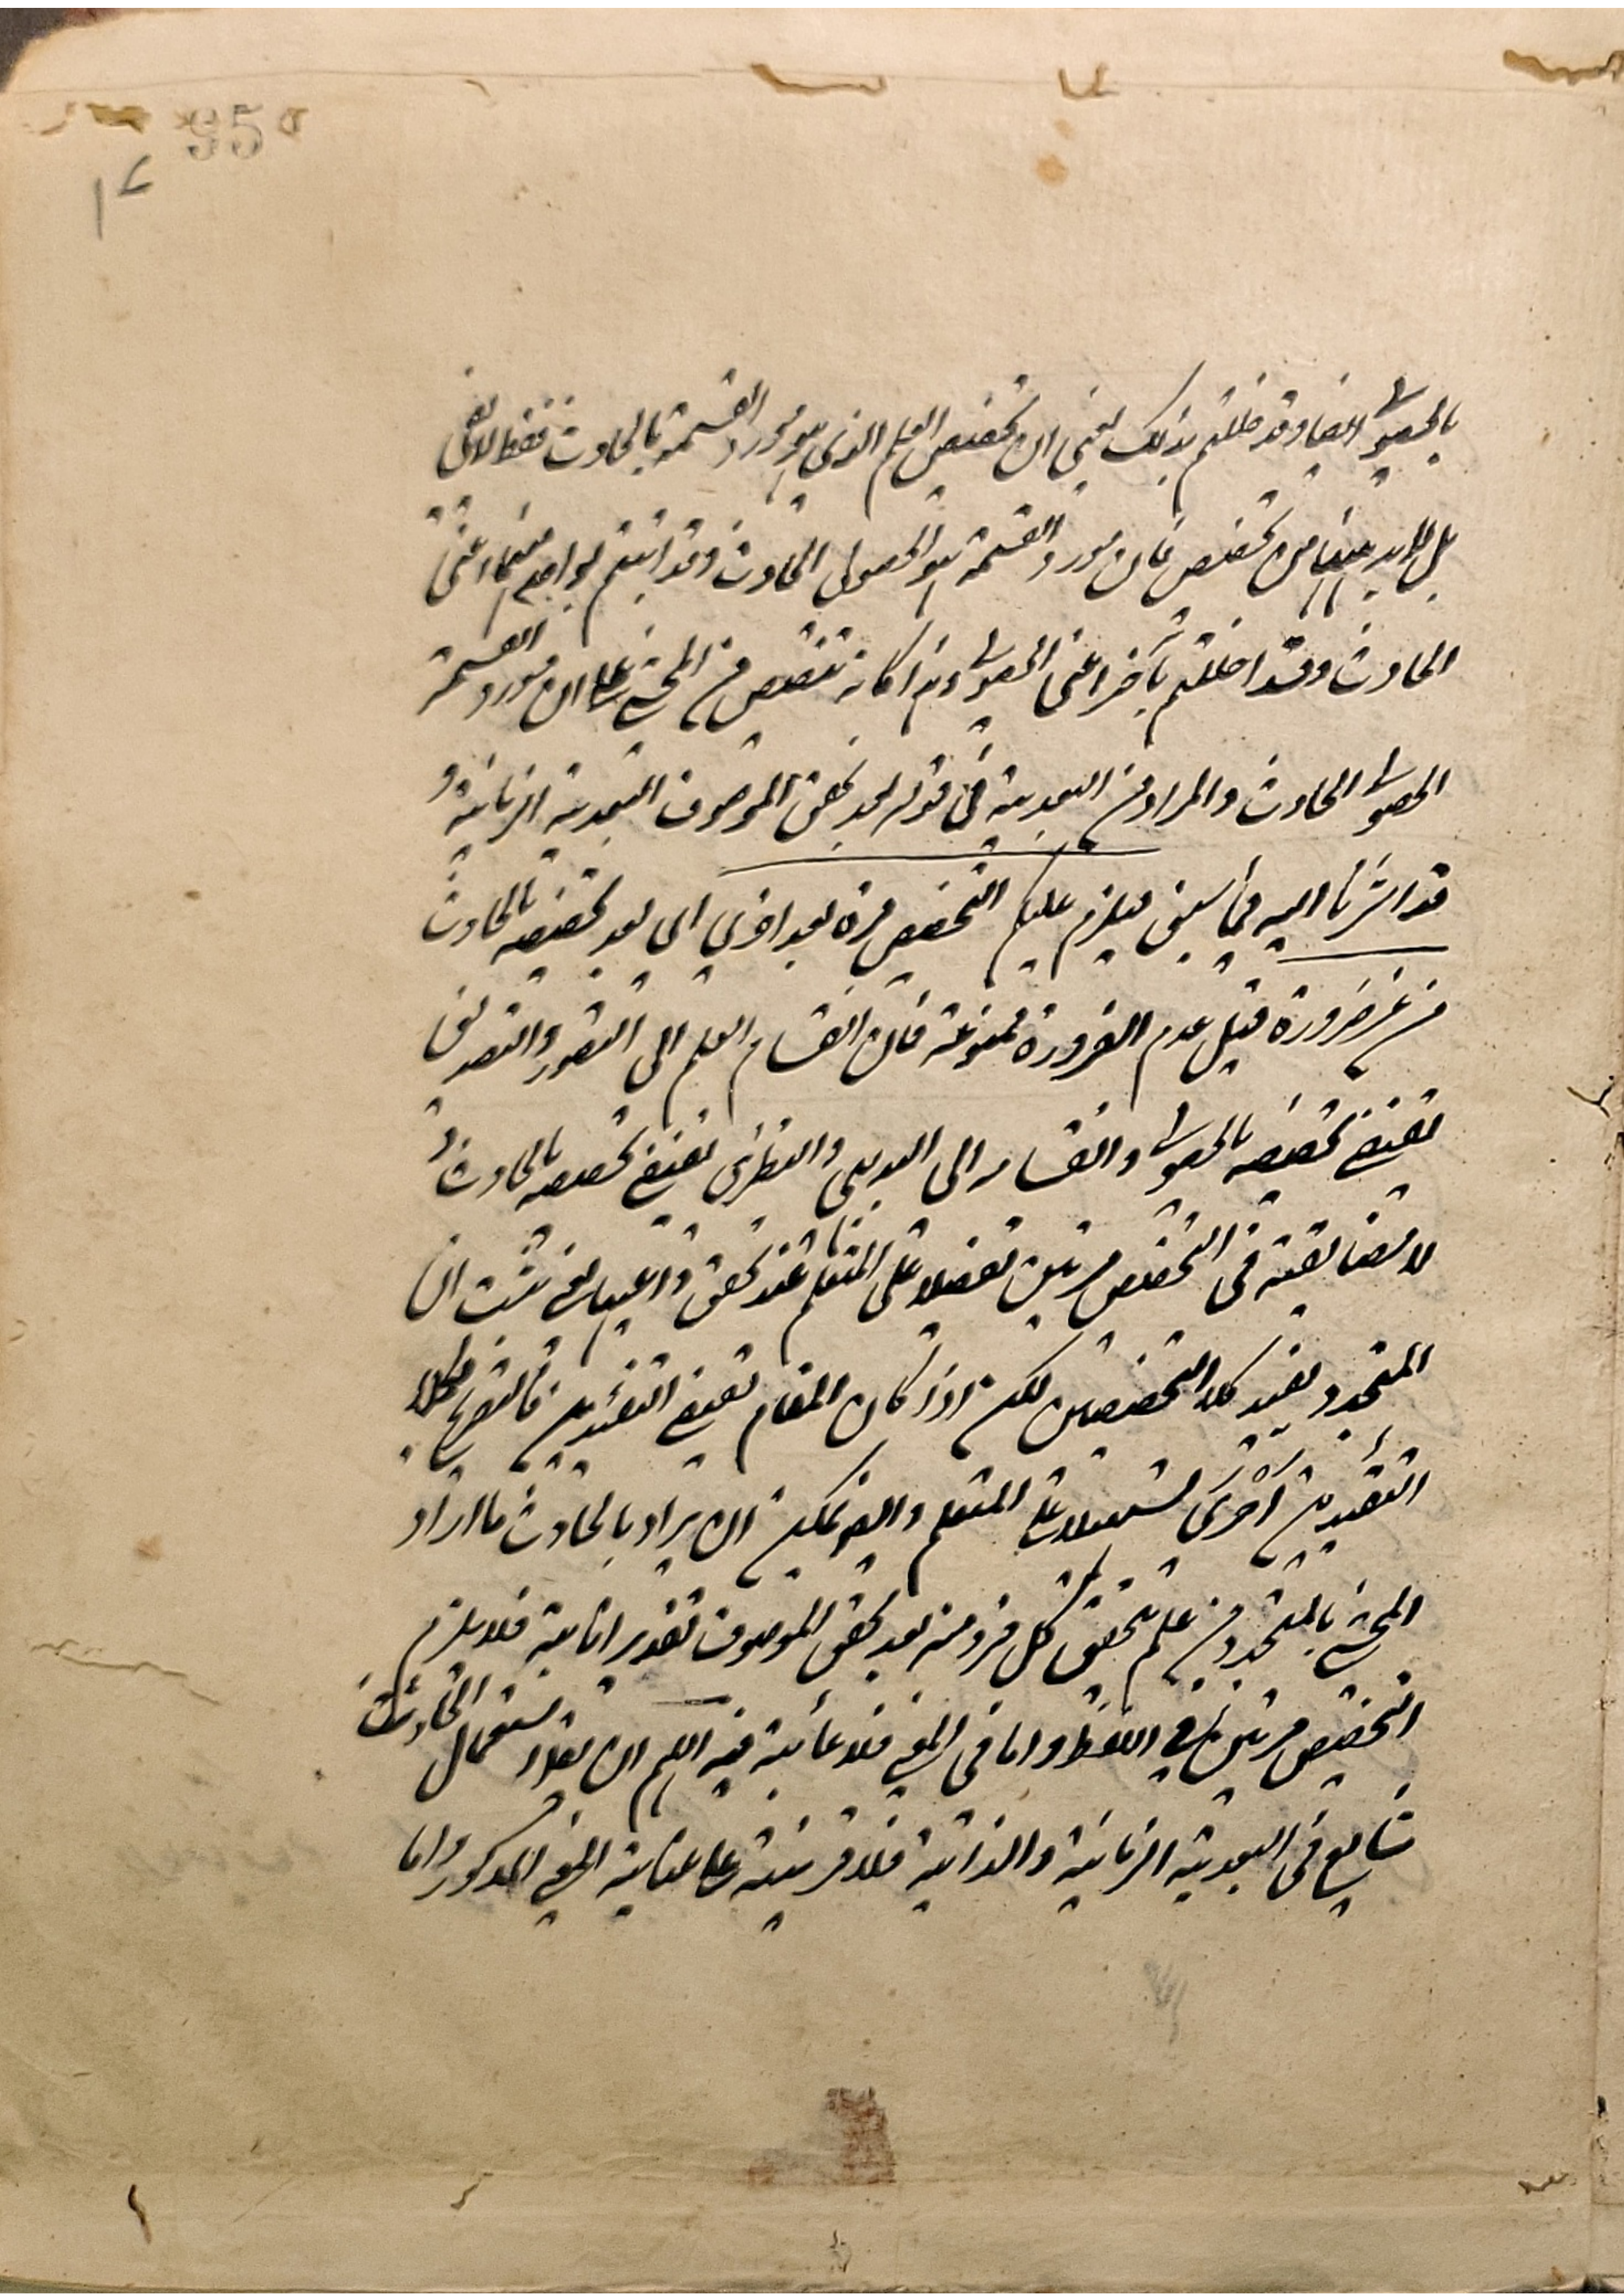 95
١٧
بالحصولى ايضا وقد خللتم بذلك يعنى ان تخصيص العلم الذى هو مورد القسمة بالحادث فقط لا يكفى
بل لابد ههنا من تخصيص فان مورد القسمة هو الحصولى الحادث وقد اتيتم بواحد منهما اعنى
الحادث وقد اخللتم بآخر اعنى الحصولى وهذا كانه تنصيص من المحشى على ان مورد القسمة
الحصولى الحادث والمراد من البعدية فى قوله بعد تحقق الموصوف البعدية الزمانية و
قد اشرنا اليه فيما سبق فيلزم عليكم التخصيص مرة بعد اخرى اى بعد تخصيصه بالحادث
من غير ضرورة قيل عدم الضرورة ممنوعة فان انقسام العلم الى التصور والتصديق
يقتضى تخصيصه بالحصولى وانقسامه الى البديهى والنظرى يقتضى تخصيصه بالحادث و
لا مضايقة فى التخصيص مرتين تفضيلا على المتعلم عند تحقق داعيها نعم يثبت ان
المتجدد يفيد كلا التخصيصين لكن اذا كان المقام يقتضى التقييدين فالتصريح بكلا
التقييدين احرى تسهيلا على المتعلم وايضا يمكن ان يراد بالحادث ما اراد
المحشى بالمتجدد من علم يتحقق كل فرد منه بعد تحقق الموصوف تقدير انائية فلا يلزم
التخصيص مرتين الا فى اللفظ واما فى المعنى فلا غائبة فيه اللهم ان يقال استعمال الحادث
شايع فى البعدية الزمانية والذاتية فلا قرينة على عناية المعنى المذكور واما